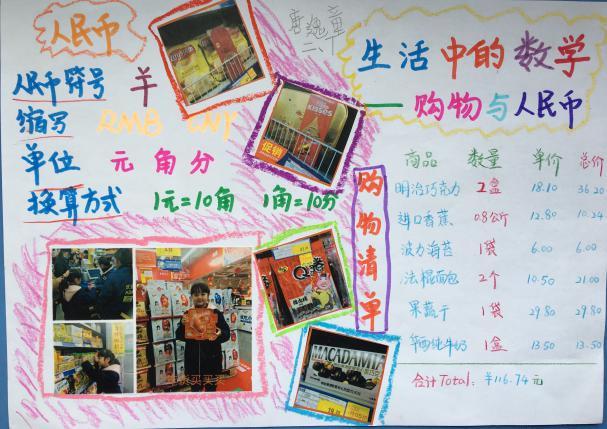 人民币
人民币符号 羊
缩写 RMB CNY
单位 元 角 分
换算方式 1元=10角 1角=10分
生活中的数学
—购物与人民币
购物清单
商品 数量 单价 总价
明治巧克力 2盒 18.10 36.20
进口香蕉 0.8公斤 12.80 10.24
波力海苔 1袋 6.00 6.00
法棍面包 2个 10.50 21.00
果蔬干 1袋 29.80 29.80
纯牛奶 1盒 13.50 13.50
合计Total: ¥116.74元
KISSES
促销
MACADAMIA
买买买